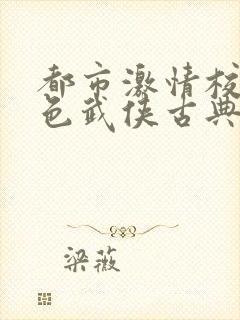 都市激情校
色武侠古典
梁薇